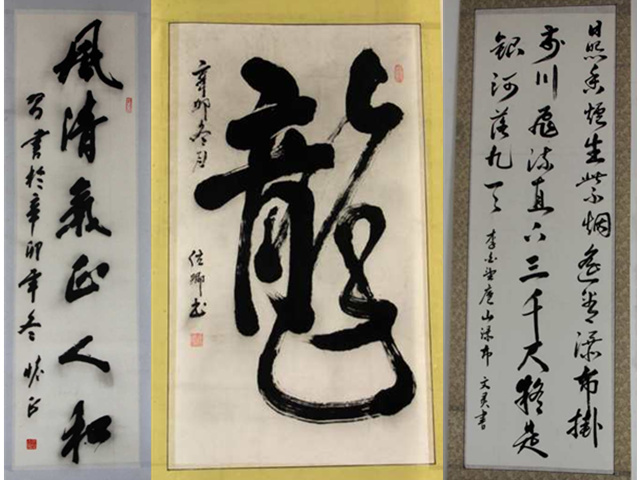 風清氣正人和
書於辛卯年冬
龍
辛卯冬月
日照香炉生紫烟遙看瀑布掛
前川飛流直下三千尺疑是
銀河落九天 李白望廬山瀑布